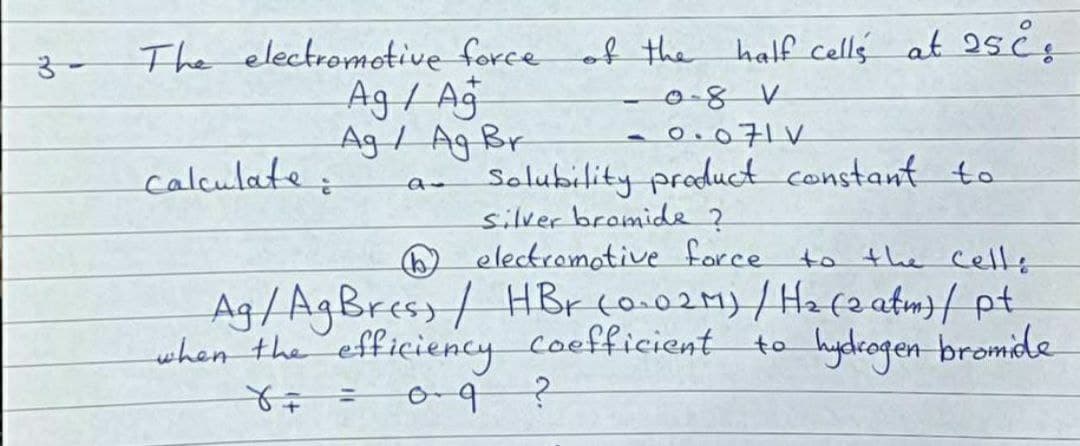 3 - The electromotive force of the half cells at 25 C° :
Ag / Ag⁺ - 0.8 V
Ag / Ag Br - 0.071 V
calculate : a- Solubility product constant to
silver bromide ?
(b) electromotive force to the cell :
Ag / AgBr(s) / HBr (0.02M) / H2 (2 atm) / pt
when the efficiency coefficient to hydrogen bromide
γ∓ = 0.9 ?